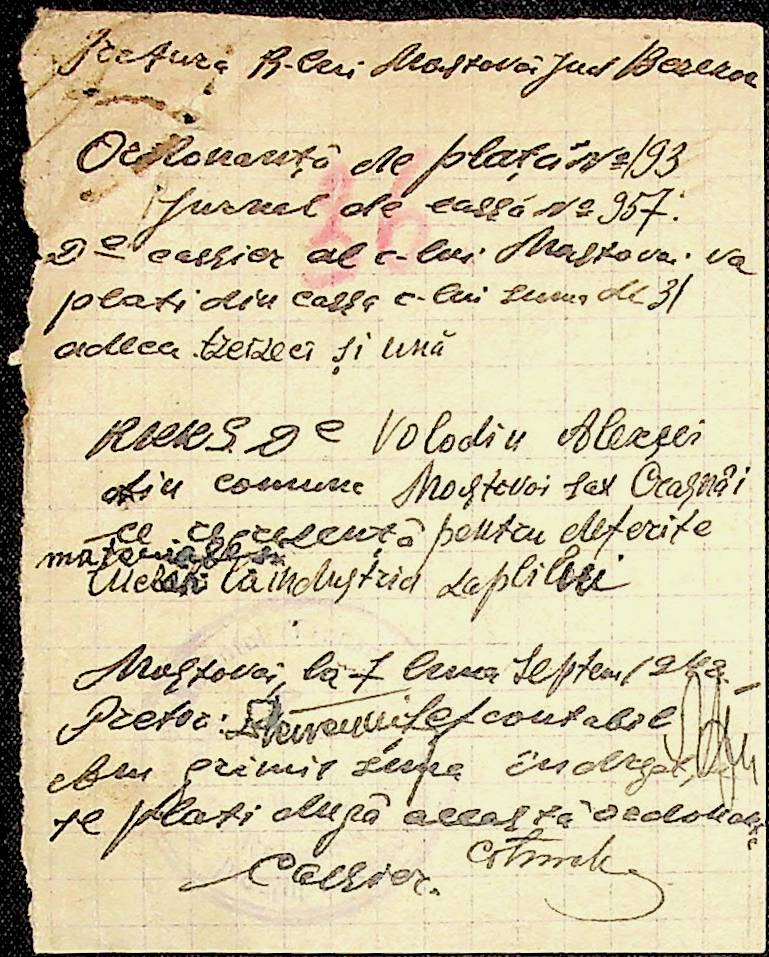 Pretura R-lui Mostovoi Jud Berezov
Ordonanță de plată № 193
Jurnal de cassă № 957.
Dl cassier al c-lui Mostovoi va
plati din cassa c-lui suma de 31
adeca treizeci și ună
RKKS. Dl Volodin Alexei
din comuna Mostovoi sat Crasnâi
ce reprezentă pentru diferite
materiale
lucrări la industria laptilui
Mostovoi, la 7 luna Septem 1942
Pretor: Șef contabil
Am primit suma
se plati după aceasta ordonanță
Cassier.